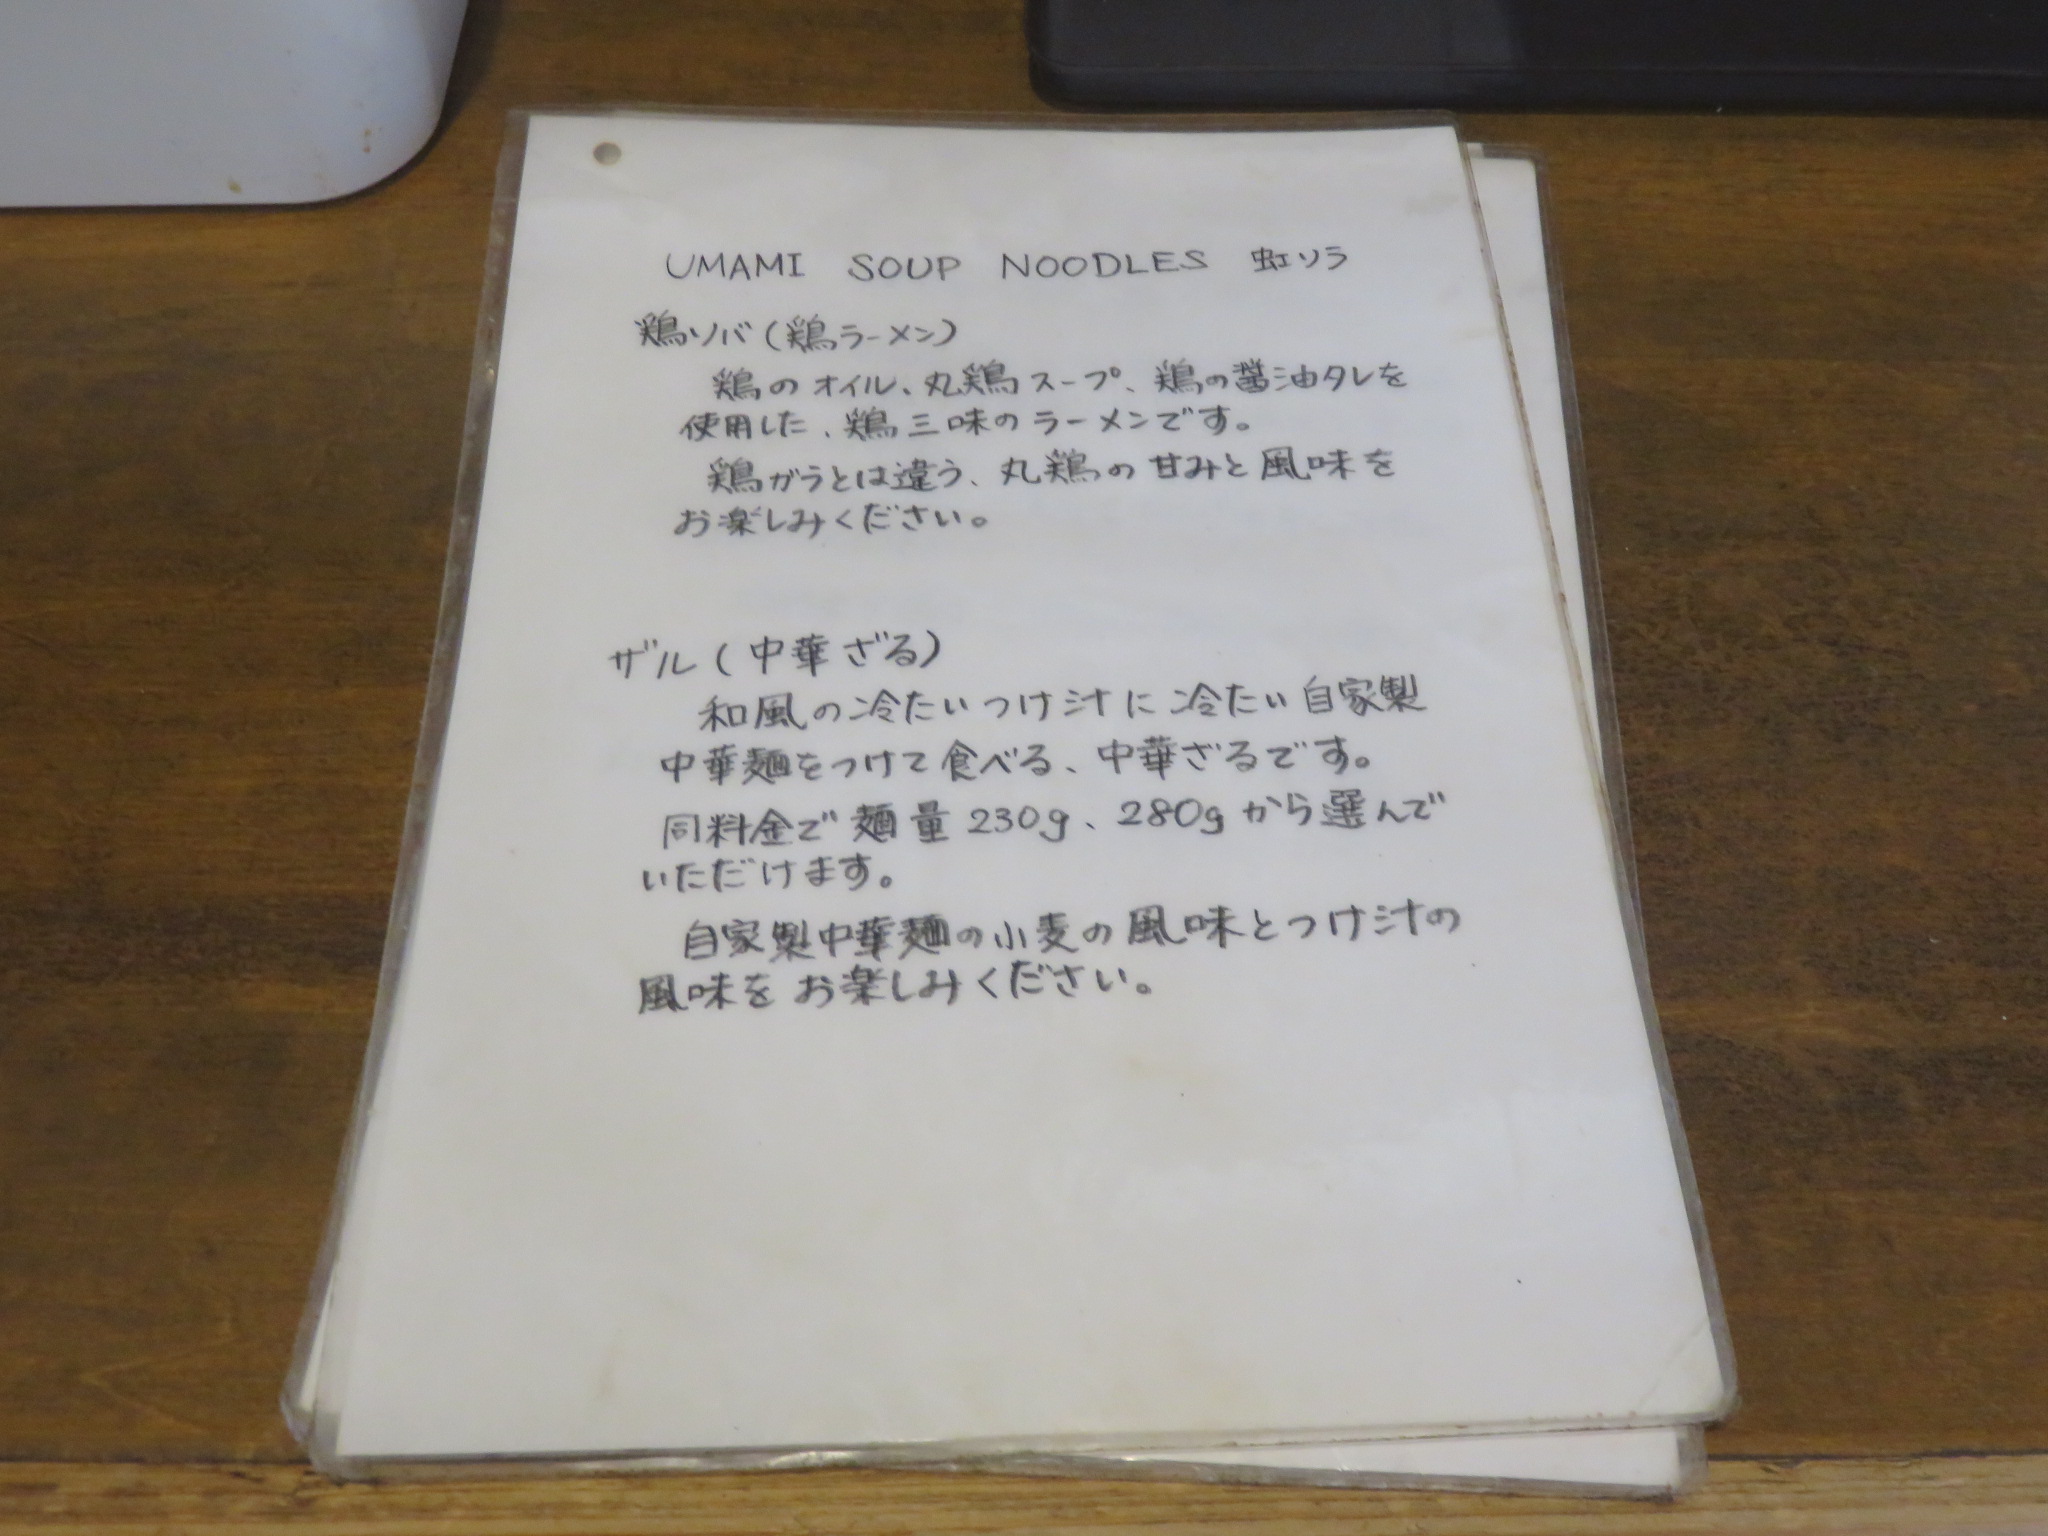 UMAMI SOUP NOODLES 虹ソラ
鶏ソバ(鶏ラーメン)
鶏のオイル、丸鶏スープ、鶏の醤油タレを
使用した、鶏三味のラーメンです。
鶏ガラとは違う、丸鶏の甘みと風味を
お楽しみください。
ザル(中華ざる)
和風の冷たいつけ汁に冷たい自家製
中華麺をつけて食べる、中華ざるです。
同料金で麺量230g、280gから選んで
いただけます。
自家製中華麺の小麦の風味とつけ汁の
風味をお楽しみください。